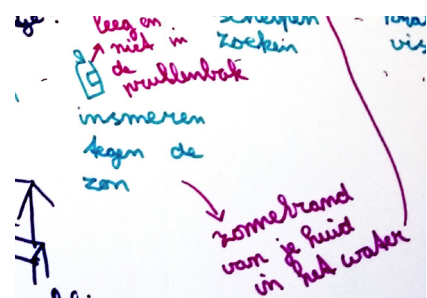 leeg en
niet in
de
prullenbak
zoeken
insmeren
tegen de
zon
zonnebrand
van je huid
in het water